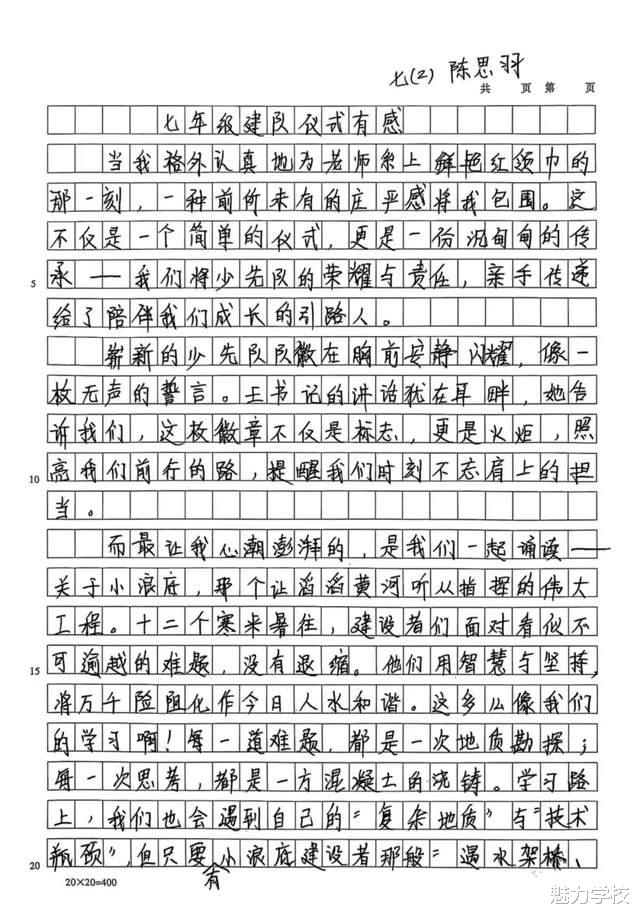 七(2) 陈思羽
共 页 第 页
七年级建队仪式有感
当我格外认真地为老师系上鲜艳红领巾的
那一刻，一种前所未有的庄严感将我包围。这
不仅是一个简单的仪式，更是一份沉甸甸的传
5 承——我们将少先队的荣耀与责任，亲手传递
给了陪伴我们成长的引路人。
崭新的少先队队徽在胸前安静闪耀，像一
枚无声的誓言。王书记的讲话犹在耳畔，她告
诉我们，这枚徽章不仅是标志，更是火炬，照
10 亮我们前行的路，提醒我们时刻不忘肩上的担
当。
而最让我心潮澎湃的，是我们一起诵读——
关于小浪底，那个让滔滔黄河听从指挥的伟大
工程。十二个寒来暑往，建设者们面对看似不
15 可逾越的难题，没有退缩。他们用智慧与坚持，
将万千险阻化作今日人水和谐。这多么像我们
的学习啊！每一道难题，都是一次地质勘探；
每一次思考，都是一方混凝土的浇铸。学习路
上，我们也会遇到自己的“复杂地质”与“技术
20 瓶颈”，但只要有小浪底建设者那般“遇水架桥、
20×20=400
魅力学校